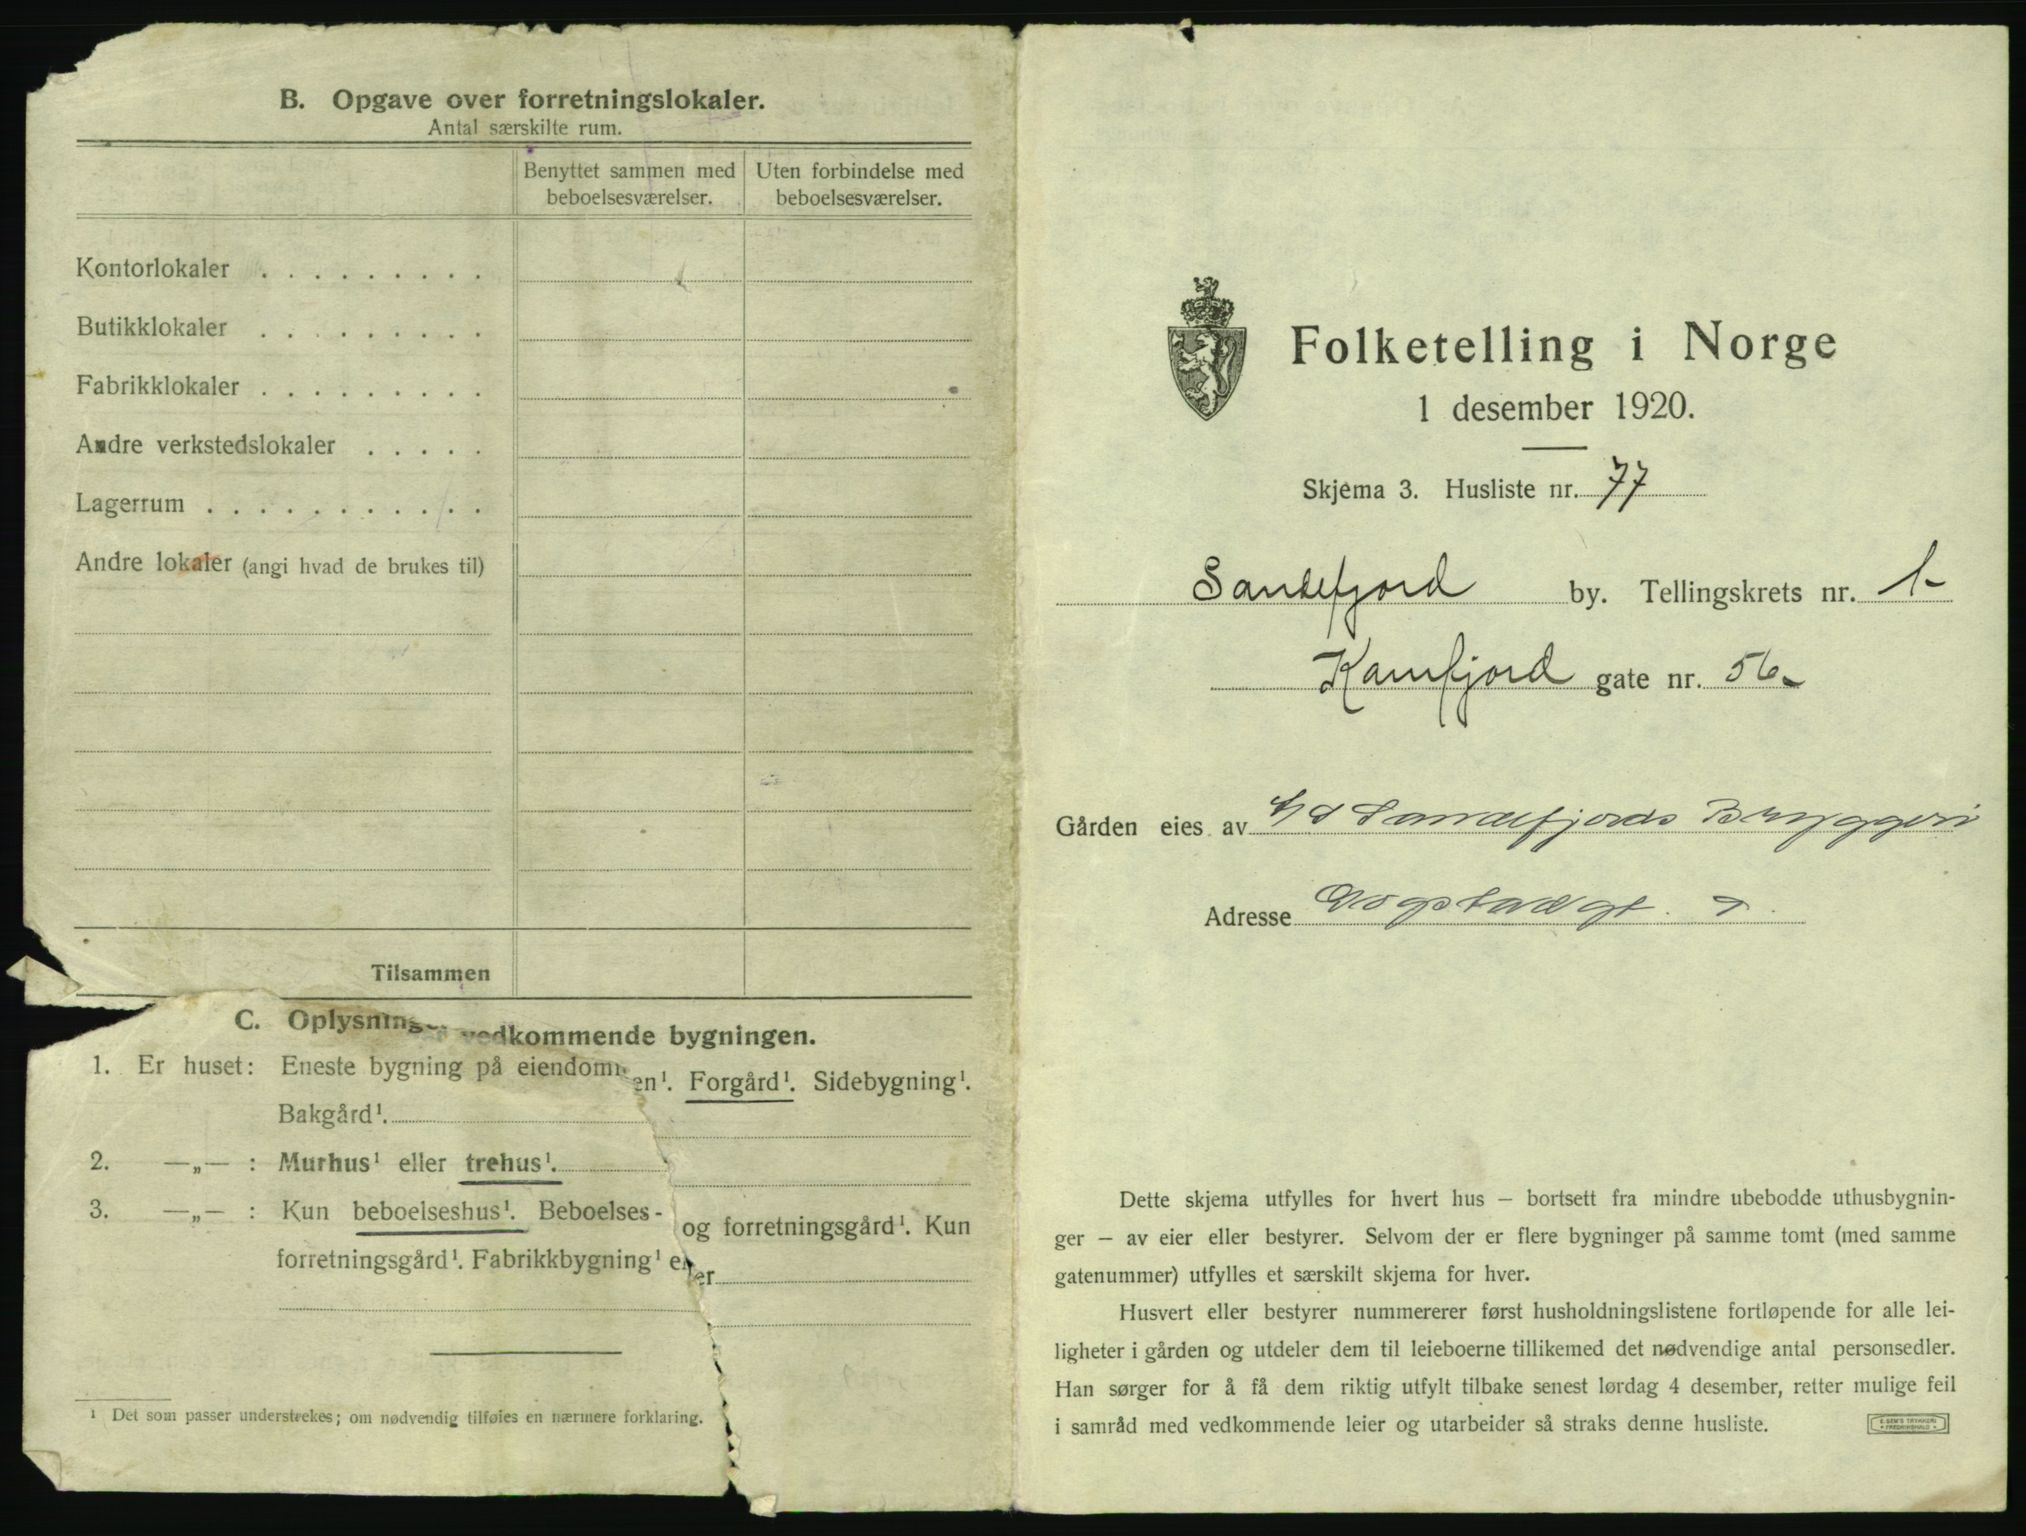 B. Opgave over forretningslokaler.
Antal særskilte rum.
Benyttet sammen med beboelsesværelser.
Uten forbindelse med beboelsesværelser.
Kontorlokaler . . . . . . . . .
Butikklokaler . . . . . . . . .
Fabrikklokaler . . . . . . . . .
Andre verkstedslokaler . . . . .
Lagerrum . . . . . . . . . . .
Andre lokaler (angi hvad de brukes til)
Tilsammen
C. Oplysninger vedkommende bygningen.
1. Er huset: Eneste bygning på eiendommen¹. Forgård¹. Sidebygning¹.
Bakgård¹.
2. —„— : Murhus¹ eller trehus¹.
3. —„— : Kun beboelseshus¹. Beboelses- og forretningsgård¹. Kun
forretningsgård¹. Fabrikkbygning¹ eller
¹ Det som passer understrekes; om nødvendig tilføies en nærmere forklaring.
Folketelling i Norge
1 desember 1920.
Skjema 3. Husliste nr. 77
Sandefjord by. Tellingskrets nr. 1-
Kamfjord gate nr. 56-
Gården eies av A/S Sandefjords Bryggeri
Adresse
Dette skjema utfylles for hvert hus — bortsett fra mindre ubebodde uthusbygnin-
ger — av eier eller bestyrer. Selvom der er flere bygninger på samme tomt (med samme
gatenummer) utfylles et særskilt skjema for hver.
Husvert eller bestyrer nummererer først husholdningslistene fortløpende for alle lei-
ligheter i gården og utdeler dem til leieboerne tillikemed det nødvendige antal personsedler.
Han sørger for å få dem riktig utfylt tilbake senest lørdag 4 desember, retter mulige feil
i samråd med vedkommende leier og utarbeider så straks denne husliste.
E. SEM'S TRYKKERI
• FREDRIKSHALD •